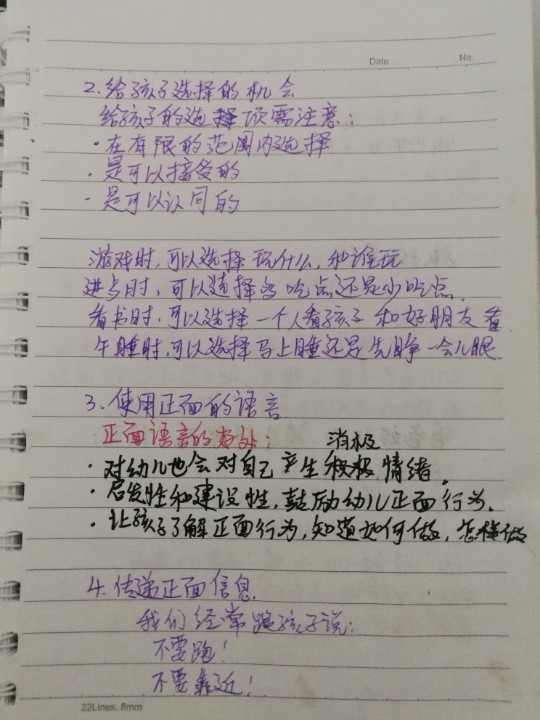 Date No.
2.给孩子选择的机会
给孩子的选择项需注意:
·在有限的范围内选择
·是可以接受的
·是可以认同的
游戏时,可以选择玩什么,和谁玩
进点时,可以选择多吃点还是少吃点.
看书时,可以选择一个人看孩子和好朋友看.
午睡时,可以选择马上睡还是先睁一会儿眼
3.使用正面的语言
正面语言的好处:
消极
·对幼儿也会对自己产生积极情绪.
·启发性和建设性,鼓励幼儿正面行为.
·让孩子了解正面行为,知道如何做,怎样做
4.传递正面信息
我们经常跟孩子说:
不要跑!
不要靠近!
22Lines. 8mm